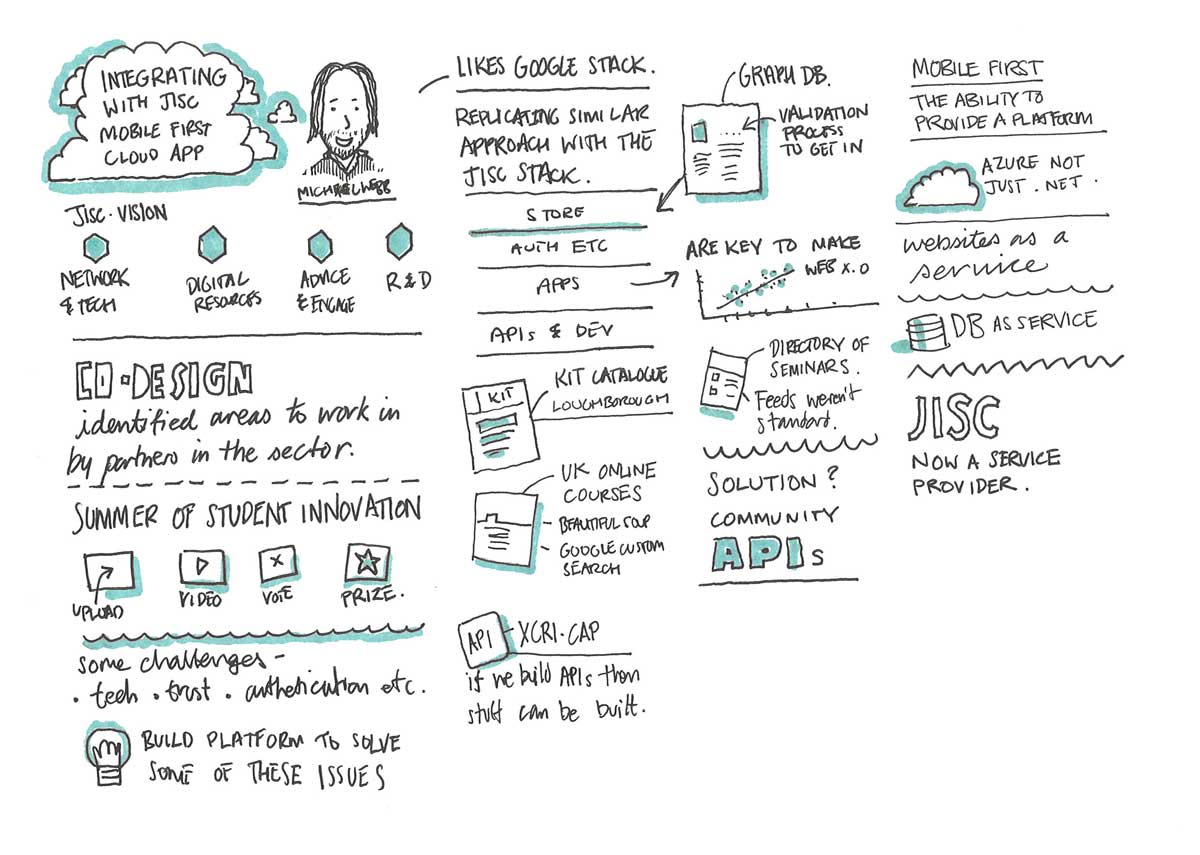 INTEGRATING
WITH JISC
MOBILE FIRST
CLOUD APP
MICHAEL WEBB
JISC · VISION
NETWORK
& TECH
DIGITAL
RESOURCES
ADVICE
& ENGAGE
R & D
CO-DESIGN
identified areas to work in
by partners in the sector.
SUMMER OF STUDENT INNOVATION
UPLOAD
VIDEO
VOTE
PRIZE.
some challenges -
· tech · trust · authetication etc.
BUILD PLATFORM TO SOLVE
SOME OF THESE ISSUES
LIKES GOOGLE STACK.
REPLICATING SIMILAR
APPROACH WITH THE
JISC STACK.
STORE
AUTH ETC
APPS
APIs & DEV
KIT
KIT CATALOGUE
LOUGHBOROUGH
UK ONLINE
COURSES
- BEAUTIFUL SOUP
- GOOGLE CUSTOM
SEARCH
API
XCRI-CAP
if we build APIs then
stuff can be built.
GRAPH DB.
VALIDATION
PROCESS
TO GET IN
ARE KEY TO MAKE
WEB X.0
DIRECTORY OF
SEMINARS.
Feeds weren't
standard.
SOLUTION?
COMMUNITY
APIs
MOBILE FIRST
THE ABILITY TO
PROVIDE A PLATFORM
AZURE NOT
JUST .NET.
websites as a
service
DB AS SERVICE
JISC
NOW A SERVICE
PROVIDER.